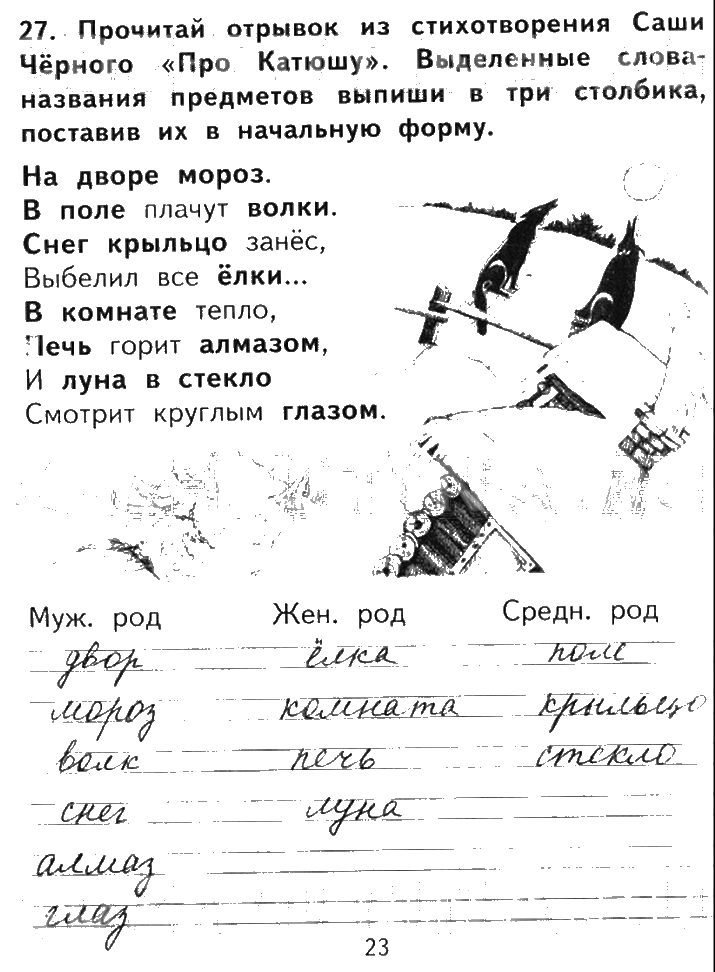 27. Прочитай отрывок из стихотворения Саши
Чёрного «Про Катюшу». Выделенные слова-
названия предметов выпиши в три столбика,
поставив их в начальную форму.
На дворе мороз.
В поле плачут волки.
Снег крыльцо занёс,
Выбелил все ёлки...
В комнате тепло,
Печь горит алмазом,
И луна в стекло
Смотрит круглым глазом.
Муж. род Жен. род Средн. род
двор ёлка поле
мороз комната крыльцо
волк печь стекло
снег луна
алмаз
глаз
23